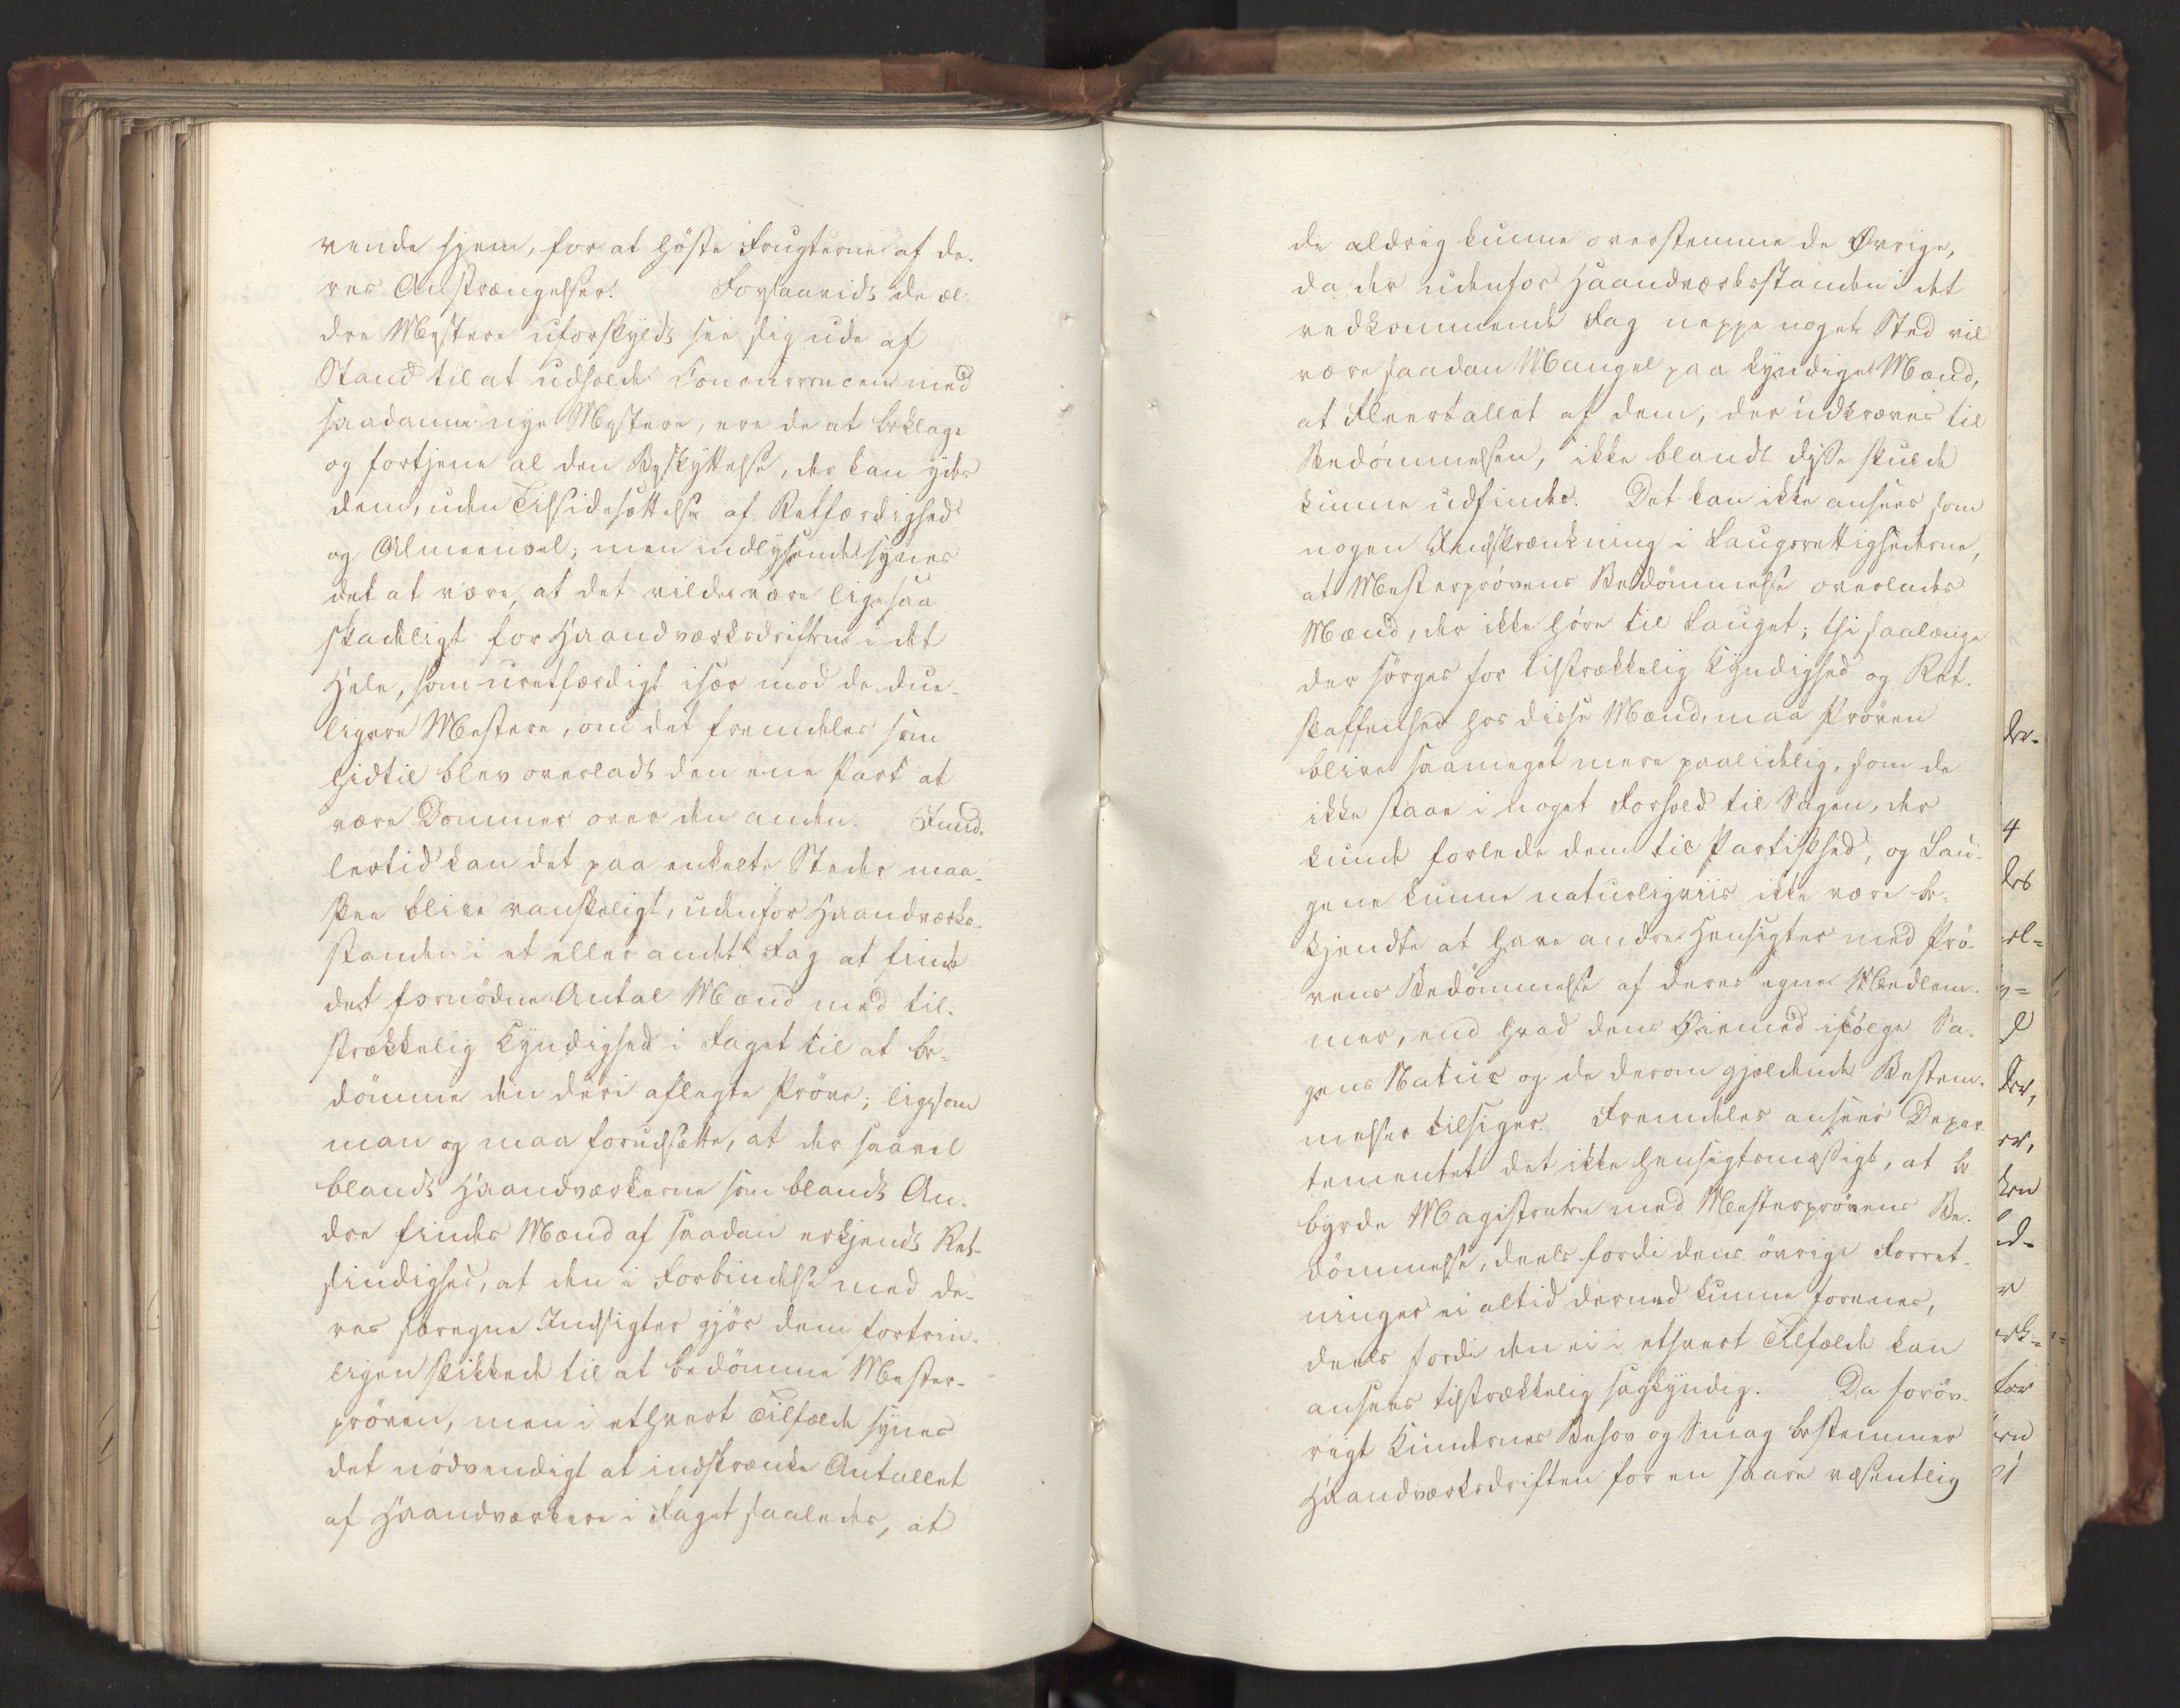 vende hjem, for at höste Frugterne af de-
res Anstrængelser. Forsaavidt de æl-
dre Mestere uforskyldt see sig ude af
Stand til at udholde Concurrencen med
saadanne nye Mestere, ere de at beklage
og fortjene al den Beskyttelse, der kan ydes
dem, uden Tilsidesættelse af Retfærdighed
og Almeenvel; men indlysende synes
det at være, at det vilde være ligesaa
skadeligt for Haandværksdriften i det
Hele, som uretfærdigt især mod de due-
ligere Mestere, om det fremdeles som
hidtil blev overladt den ene Part at
være Dommer over den anden. Imid-
lertid kan det paa enkelte Steder maa-
skee blive vanskeligt, udenfor Haandværks-
standen i et eller andet Fag at finde
det fornödne Antal Mænd med til-
strækkelig Kyndighed i Faget til at be-
dömme den deri aflagte Pröve; ligesom
man og maa forudsætte, at der saavel
blandt Haandværkerne som blandt An-
dre findes Mænd af saadan erkjendt Ret-
sindighed, at den i Forbindelse med de-
res særegne Indsigter gjör dem fortrin-
ligen skikkede til at bedömme Mester-
pröven, men i ethvert Tilfælde synes
det nödvendigt at indskrænke Antallet
af Haandværkere i Faget saaledes, at
de aldrig kunne overstemme de Øvrige,
da der udenfor Haandværksstanden i det
vedkommende Fag neppe noget Sted vil
være saadan Mangel paa kyndige Mænd,
at Fleertallet af dem, der udkræves til
Bedömmelsen, ikke blandt disse skulde
kunne udfindes. Det kan ikke ansees som
nogen Indskrænkning i Laugsrettighederne,
at Mesterprövens Bedömmelse overlades
Mænd, der ikke höre til Lauget; thi saalænge
der sörges for tilstrækkelig Kyndighed og Ret-
skaffenhed hos disse Mænd, maa Pröven
blive saameget mere paalidelig, som de
ikke staae i noget Forhold til Sagen, der
kunde forlede dem til Partiskhed, og Lau-
gene kunne naturligviis ikke være be-
kjendte at have andre Hensigter med Prö-
vens Bedömmelse af deres egne Medlem-
mer, end hvad dens Øiemed ifölge Sa-
gens Natur og de derom gjældende Bestem-
melser tilsiger. Fremdeles ansees Depar-
tementet det ikke hensigtsmæssigt, at be-
byrde Magistraten med Mesterprövens Be-
dömmelse, deels fordi dens övrige Forret-
ninger ei altid dermed kunne forenes,
deels fordi den ei i ethvert Tilfælde kan
ansees tilstrækkelig sagkyndig. Da foröv-
rigt Kundernes Behov og Smag bestemmer
Haandværksdriften for en saare væsentlig